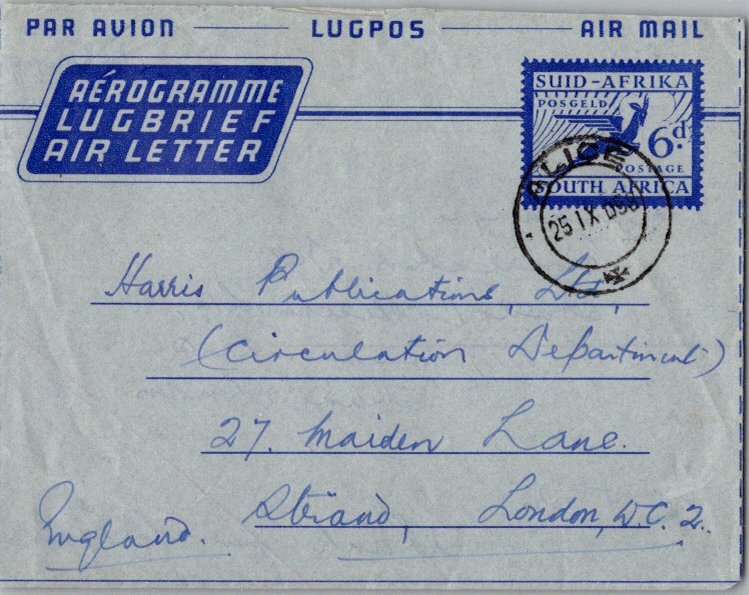 PAR AVION LUGPOS AIR MAIL
AÉROGRAMME
LUGBRIEF
AIR LETTER
SUID-AFRIKA
POSGELD
6d.
POSTAGE
SOUTH AFRICA
ALICE
25 IX
Harris Publications, Ltd,
(Circulation Department)
27. Maiden Lane.
Strand, London, W.C.2.
England.